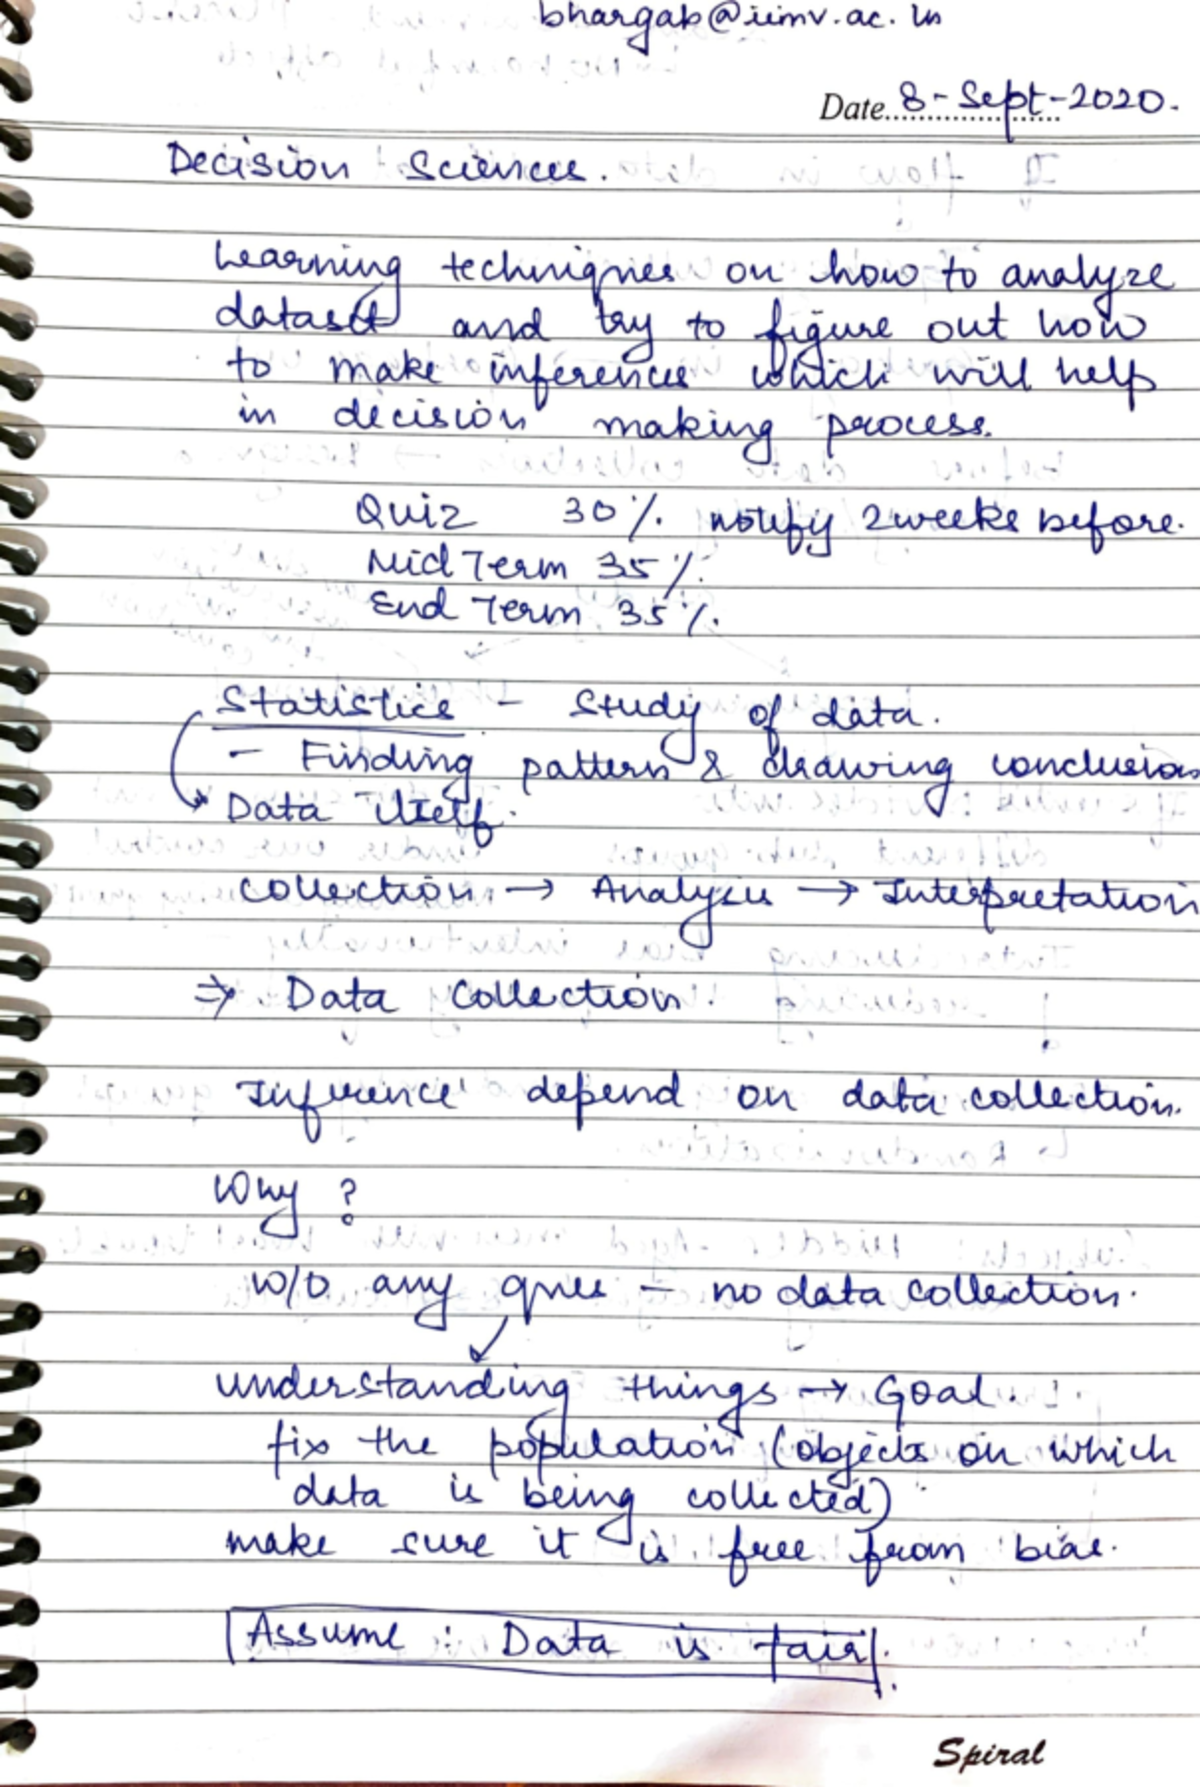 bhargab@iimv.ac.in
Date 8-Sept-2020.
Decision Sciences.
Learning techniques on how to analyze
dataset and try to figure out how
to make inferences which will help
in decision making process.
Quiz 30% notify 2 weeks before.
Mid Term 35%.
End Term 35%.
Statistics - Study of data.
- Finding pattern & drawing conclusion
→ Data itself.
Collection → Analysis → Interpretation
⇒ Data Collection.
Inference depend on data collection.
Why ?
w/o any ques - no data collection.
understanding things → Goal.
fix the population (objects on which
data is being collected)
make sure it is free from bias.
Assume : Data is fair.
Spiral